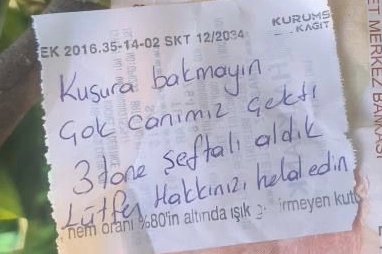 EK 2016.35-14-02 SKT 12/2034
KURUMS
KAĞIT
Kusura bakmayın
Çok canımız çekti
3 tane şeftali aldık
Lütfen Hakkınızı helal edin
nem oranı %80'in altında ışık irmeyen kutu
ET MERKEZ BANKASI